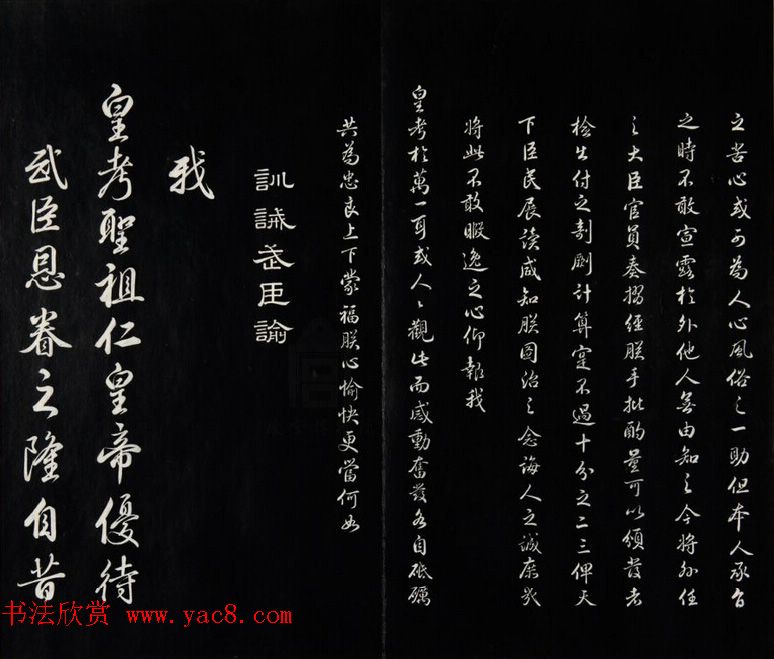 之苦心或可為人心風俗之一助但本人承旨
之時不敢宣露於外他人無由知之今將外任
之大臣官員奏摺經朕手批酌量可以頒發者
檢出付之剞劂計算寔不過十分之二三俾天
下臣民展讀咸知朕圖治之念誨人之誠庶幾
將此不敢暇逸之心仰報我
皇考於萬一耳或人人觀此而感動奮發各自砥礪
共為忠良上下蒙福朕心愉快更當何如
訓誡武臣諭
我
皇考聖祖仁皇帝優待
武臣恩眷之隆自昔
书法欣赏 www.yac8.com